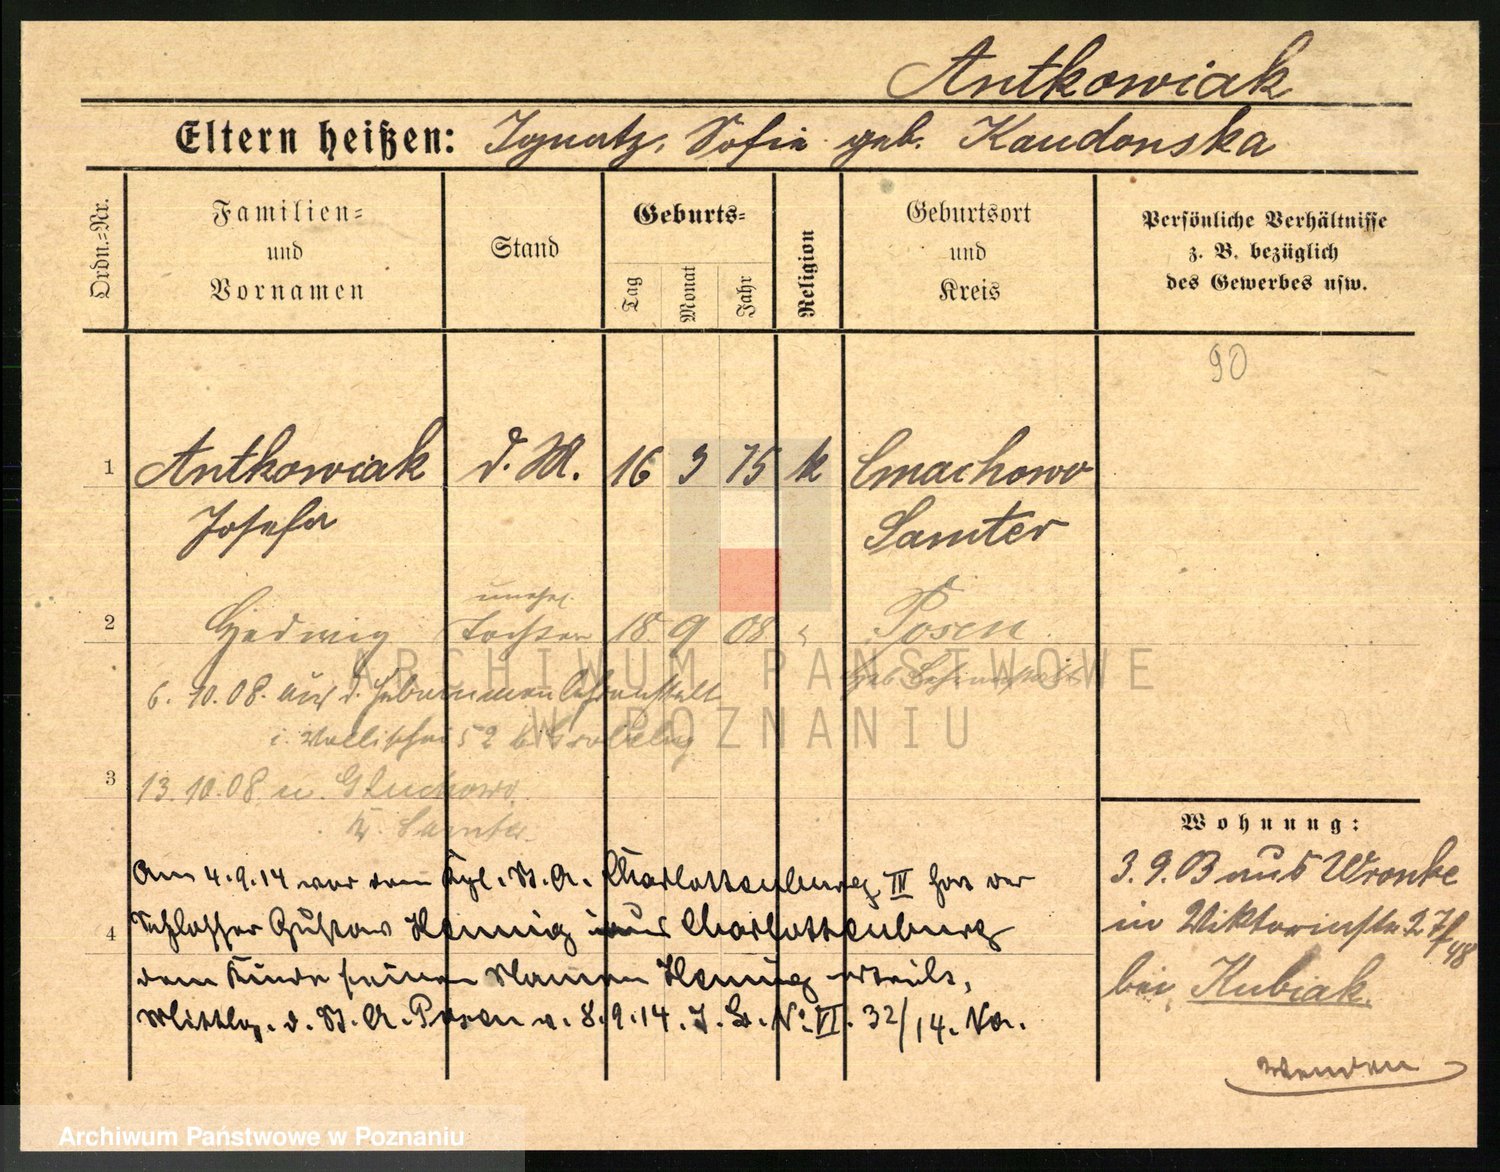 Antkowiak
Eltern heißen: Ignatz, Sofie geb. Kaudonska
Ordn.-Nr.
Familien-
und
Vornamen
Stand
Geburts-
Tag
Monat
Jahr
Religion
Geburtsort
und
Kreis
Persönliche Verhältnisse
z. B. bezüglich
des Gewerbes usw.
90
1 Antkowiak d. M. 16 3 75 k Cmachowo
Josefa Samter
unehel.
2 Hedwig Tochter 18. 9 08 " Posen
6. 10. 08. aus d. Hebammen Lehranstalt
i. Wallischei 52 b.
3
13. 10. 08 n. Gluchowo
Kr. Samter
Am 4.9.14 vor dem Kgl. St. A. Charlottenburg III hat der
4 Schlosser Gustav Hennig aus Charlottenburg
dem Kinde seinen Namen Hennig erteilt,
Mittlg. d. St. A. Posen v. 8.9.14. J. B. No VI. 32/14.
Wohnung:
3. 9. 03 aus Wronke
in Viktoriastr 27
bei Kubiak.
Wenden
ARCHIWUM PAŃSTWOWE
W POZNANIU
Archiwum Państwowe w Poznaniu